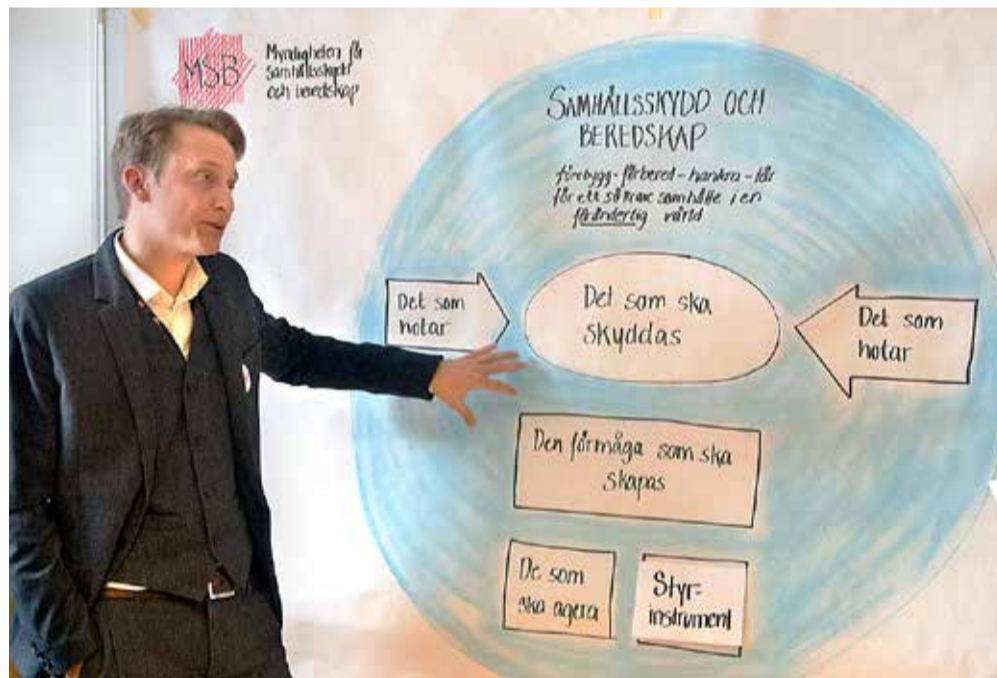 MSB
Myndigheten för
samhällsskydd
och beredskap
SAMHÄLLSSKYDD OCH
BEREDSKAP
förebygg - förbered - hantera - lär
för ett säkrare samhälle i en
föränderlig värld
Det som
hotar
Det som ska
skyddas
Det som
hotar
Den förmåga som ska
skapas
De som
ska agera
Styr-
instrument